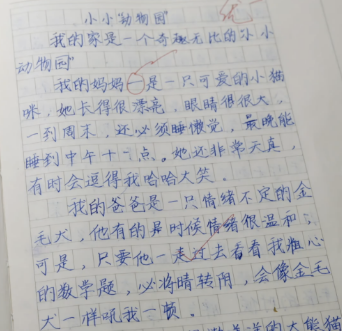 小小"动物园"
我的家是一个奇趣无比的"小小
动物园"
我的妈妈是一只可爱的小猫
咪，她长得很漂亮，眼睛很很大，
一到周末，还必须睡懒觉，最晚能
睡到中午十二点。她还非常天真，
有时会逗得我哈哈大笑。
我的爸爸是一只情绪不定的金
毛犬，他有的时候情绪很温和；
可是，只要他一走过去看看我粗心
的数学题，必将晴转阴，会像金毛
犬一样吼我一顿。
的大熊猫